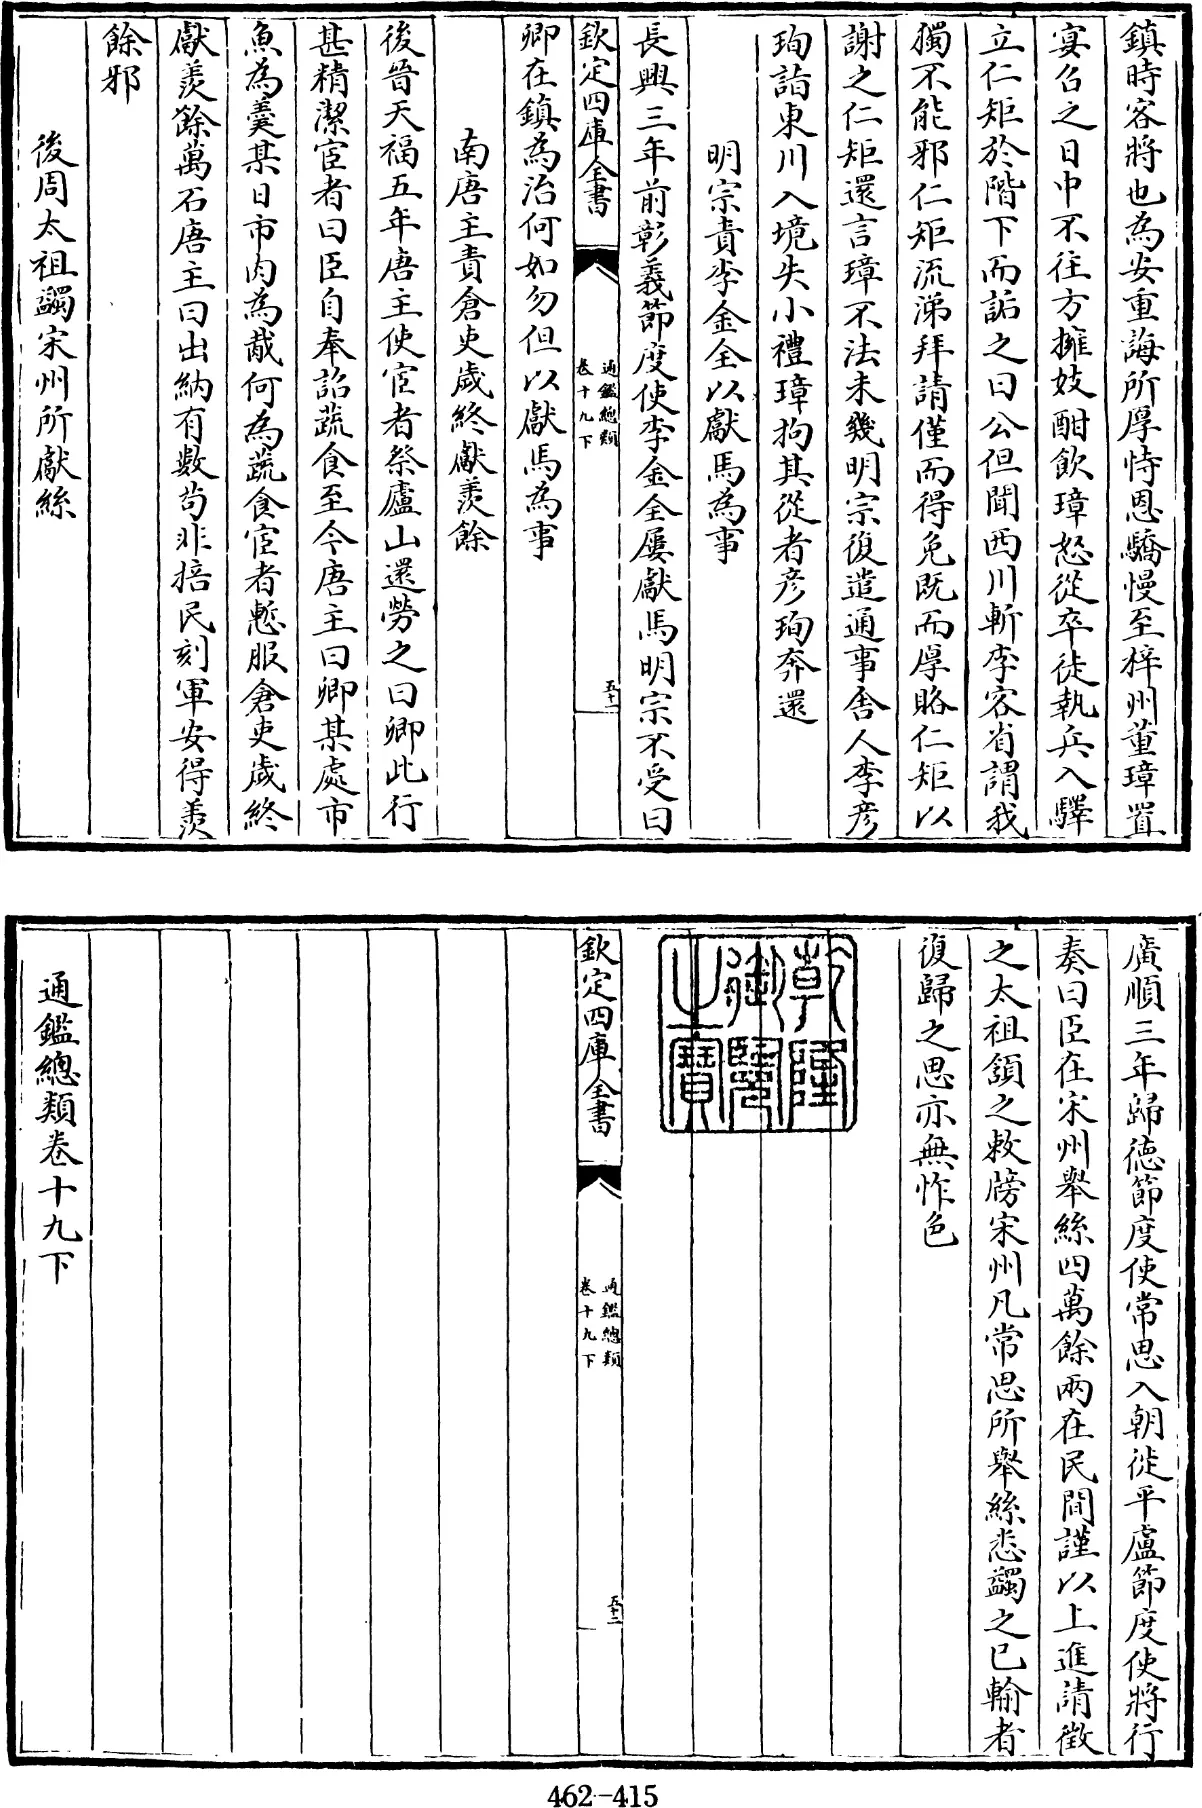 鎮時客將也為安重誨所厚恃恩驕慢至梓州董璋置
宴召之日中不往方擁妓酣飲璋怒從卒徒執兵入驛
立仁矩於階下而詬之曰公但聞西川斬李客省謂我
獨不能邪仁矩流涕拜請僅而得免既而厚賂仁矩以
謝之仁矩還言璋不法未幾明宗復遣通事舍人李彦
珣詣東川入境失小禮璋拘其從者彦珣奔還
明宗責李金全以獻馬為事
長興三年前彰義節度使李金全屢獻馬明宗不受曰
欽定四庫全書
通鑑總類
卷十九下
五十一
卿在鎮為治何如勿但以獻馬為事
南唐主責倉吏歲終獻羨餘
後晉天福五年唐主使宦者祭廬山還勞之曰卿此行
甚精潔宦者曰臣自奉詔蔬食至今唐主曰卿某處市
魚為羹某日市肉為胾何為蔬食宦者慙服倉吏歲終
獻羨餘萬石唐主曰出納有數茍非掊民刻軍安得羨
餘邪
後周太祖蠲宋州所獻絲
廣順三年歸德節度使常思入朝徙平盧節度使將行
奏曰臣在宋州舉絲四萬餘兩在民間謹以上進請徴
之太祖頷之敕牓宋州凡常思所舉絲悉蠲之已輸者
復歸之思亦無怍色
乾隆
御覽
之寶
欽定四庫全書
通鑑總類
卷十九下
五十二
通鑑總類卷十九下
462-415